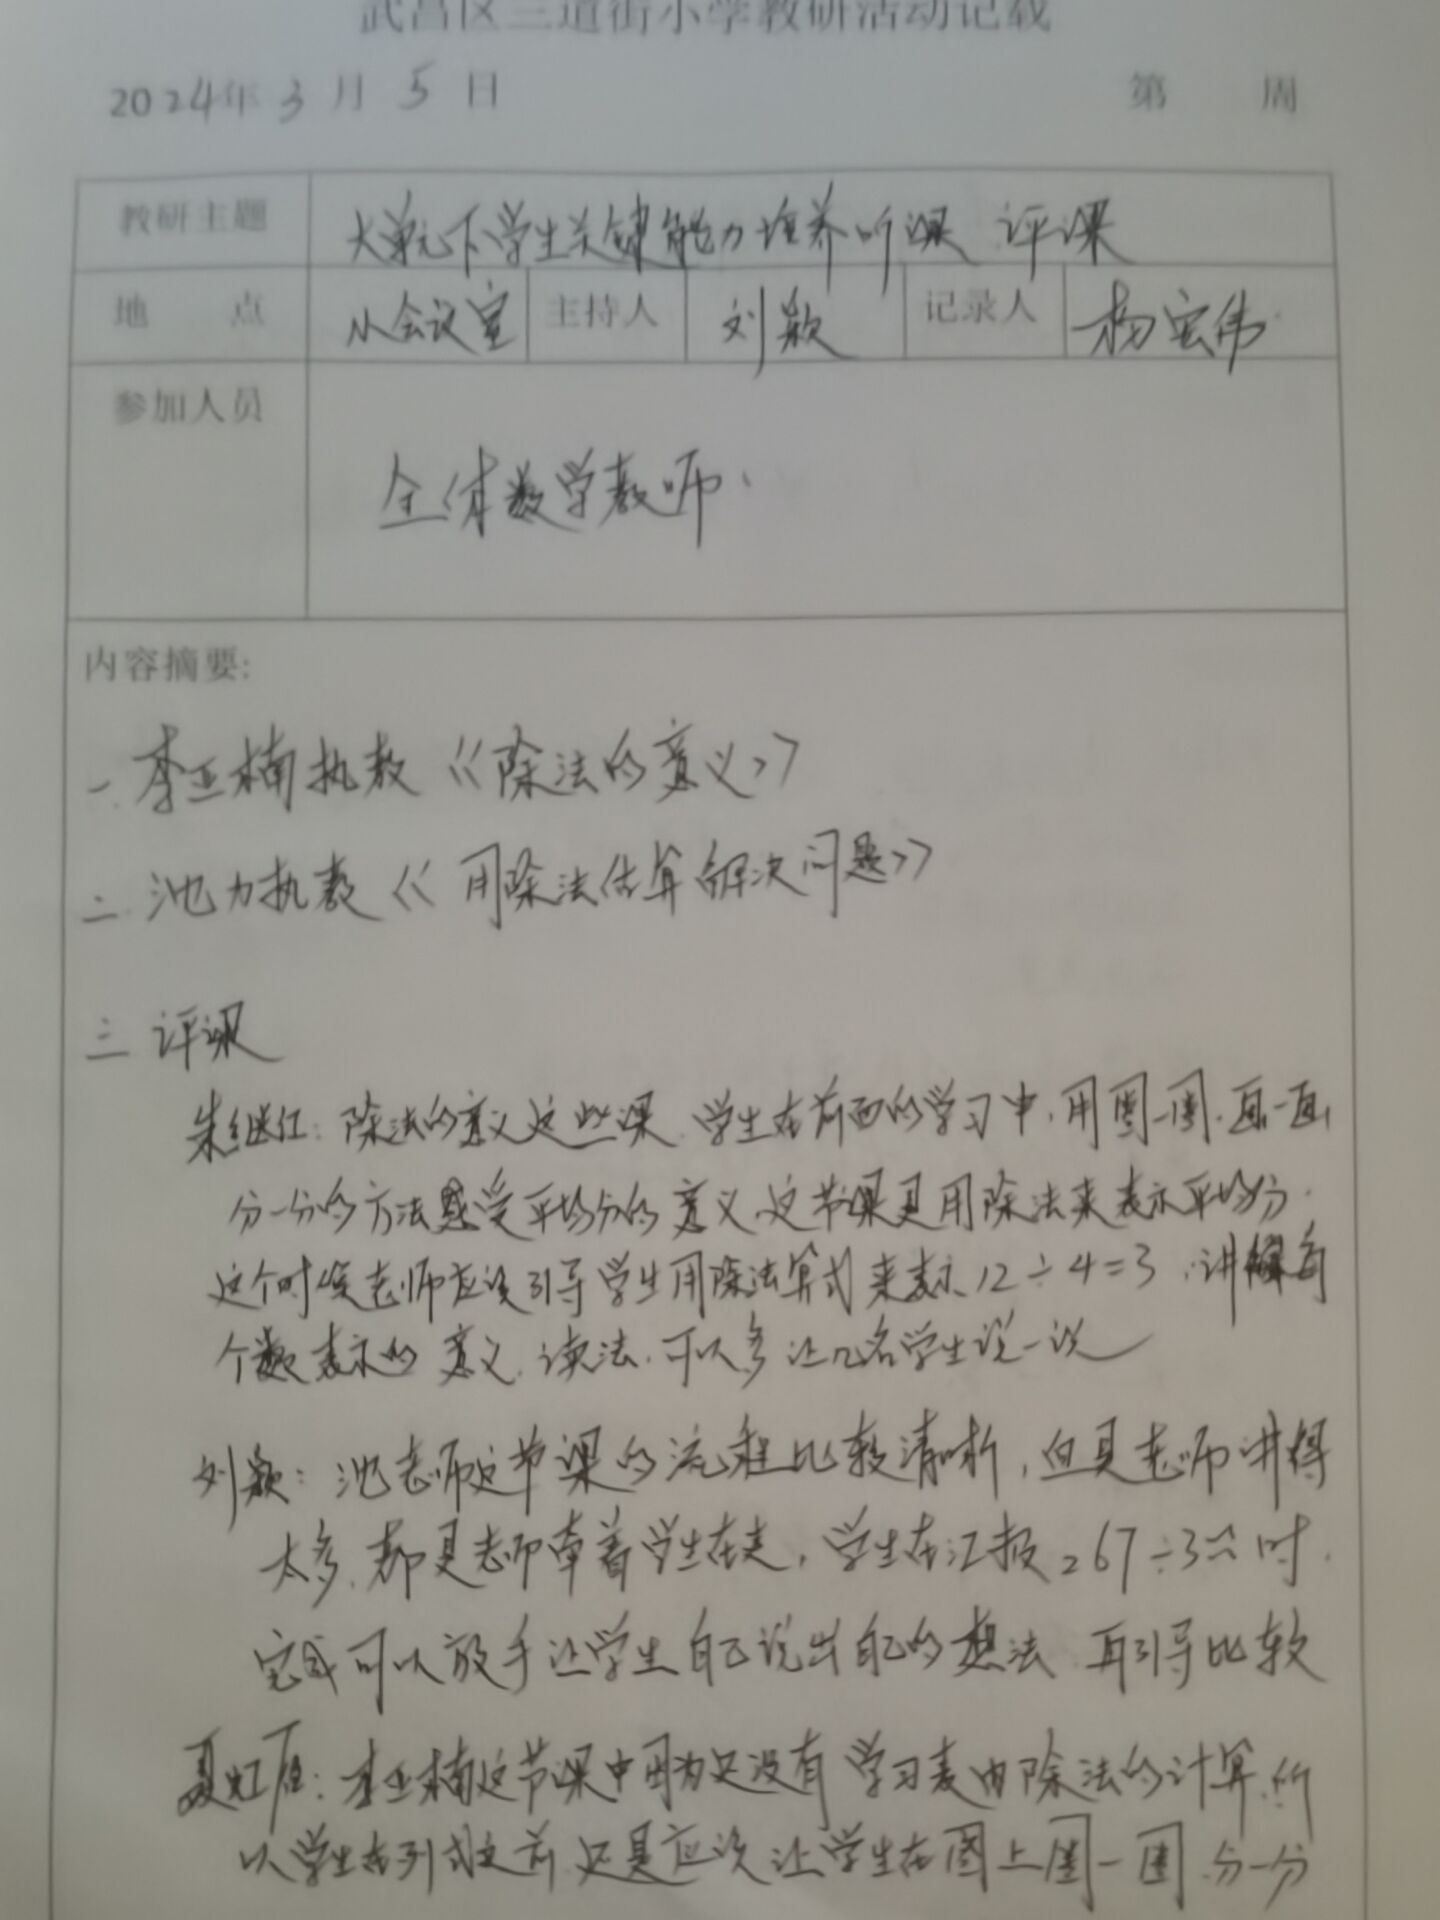 武昌区三道街小学教研活动记载
2024年3月5日 第 周
教研主题 大单元下学生关键能力培养听课 评课
地 点 小会议室 主持人 刘颖 记录人 杨宏伟
参加人员
全体数学教师
内容摘要:
一.李亚楠执教《除法的意义》
二.池力执教《用除法估算解决问题》
三 评课
朱继红:除法的意义这些课.学生在前面的学习中,用圈一圈.画一画
分一分的方法感受平均分的意义,这节课是用除法来表示平均分.
这个时候老师应该引导学生用除法算式来表示12÷4=3.讲解每
个数表示的意义.读法.可以多让几名学生说一说
刘颖:池老师这节课的流程比较清晰,但是老师讲得
太多.都是老师牵着学生在走,学生在汇报267÷3≈时.
完成可以放手让学生自己说出自己的想法 再引导比较
李亚楠这节课中因为还没有学习表内除法的计算.所
以学生在列式之前还是应该让学生在图上圈一圈.分一分